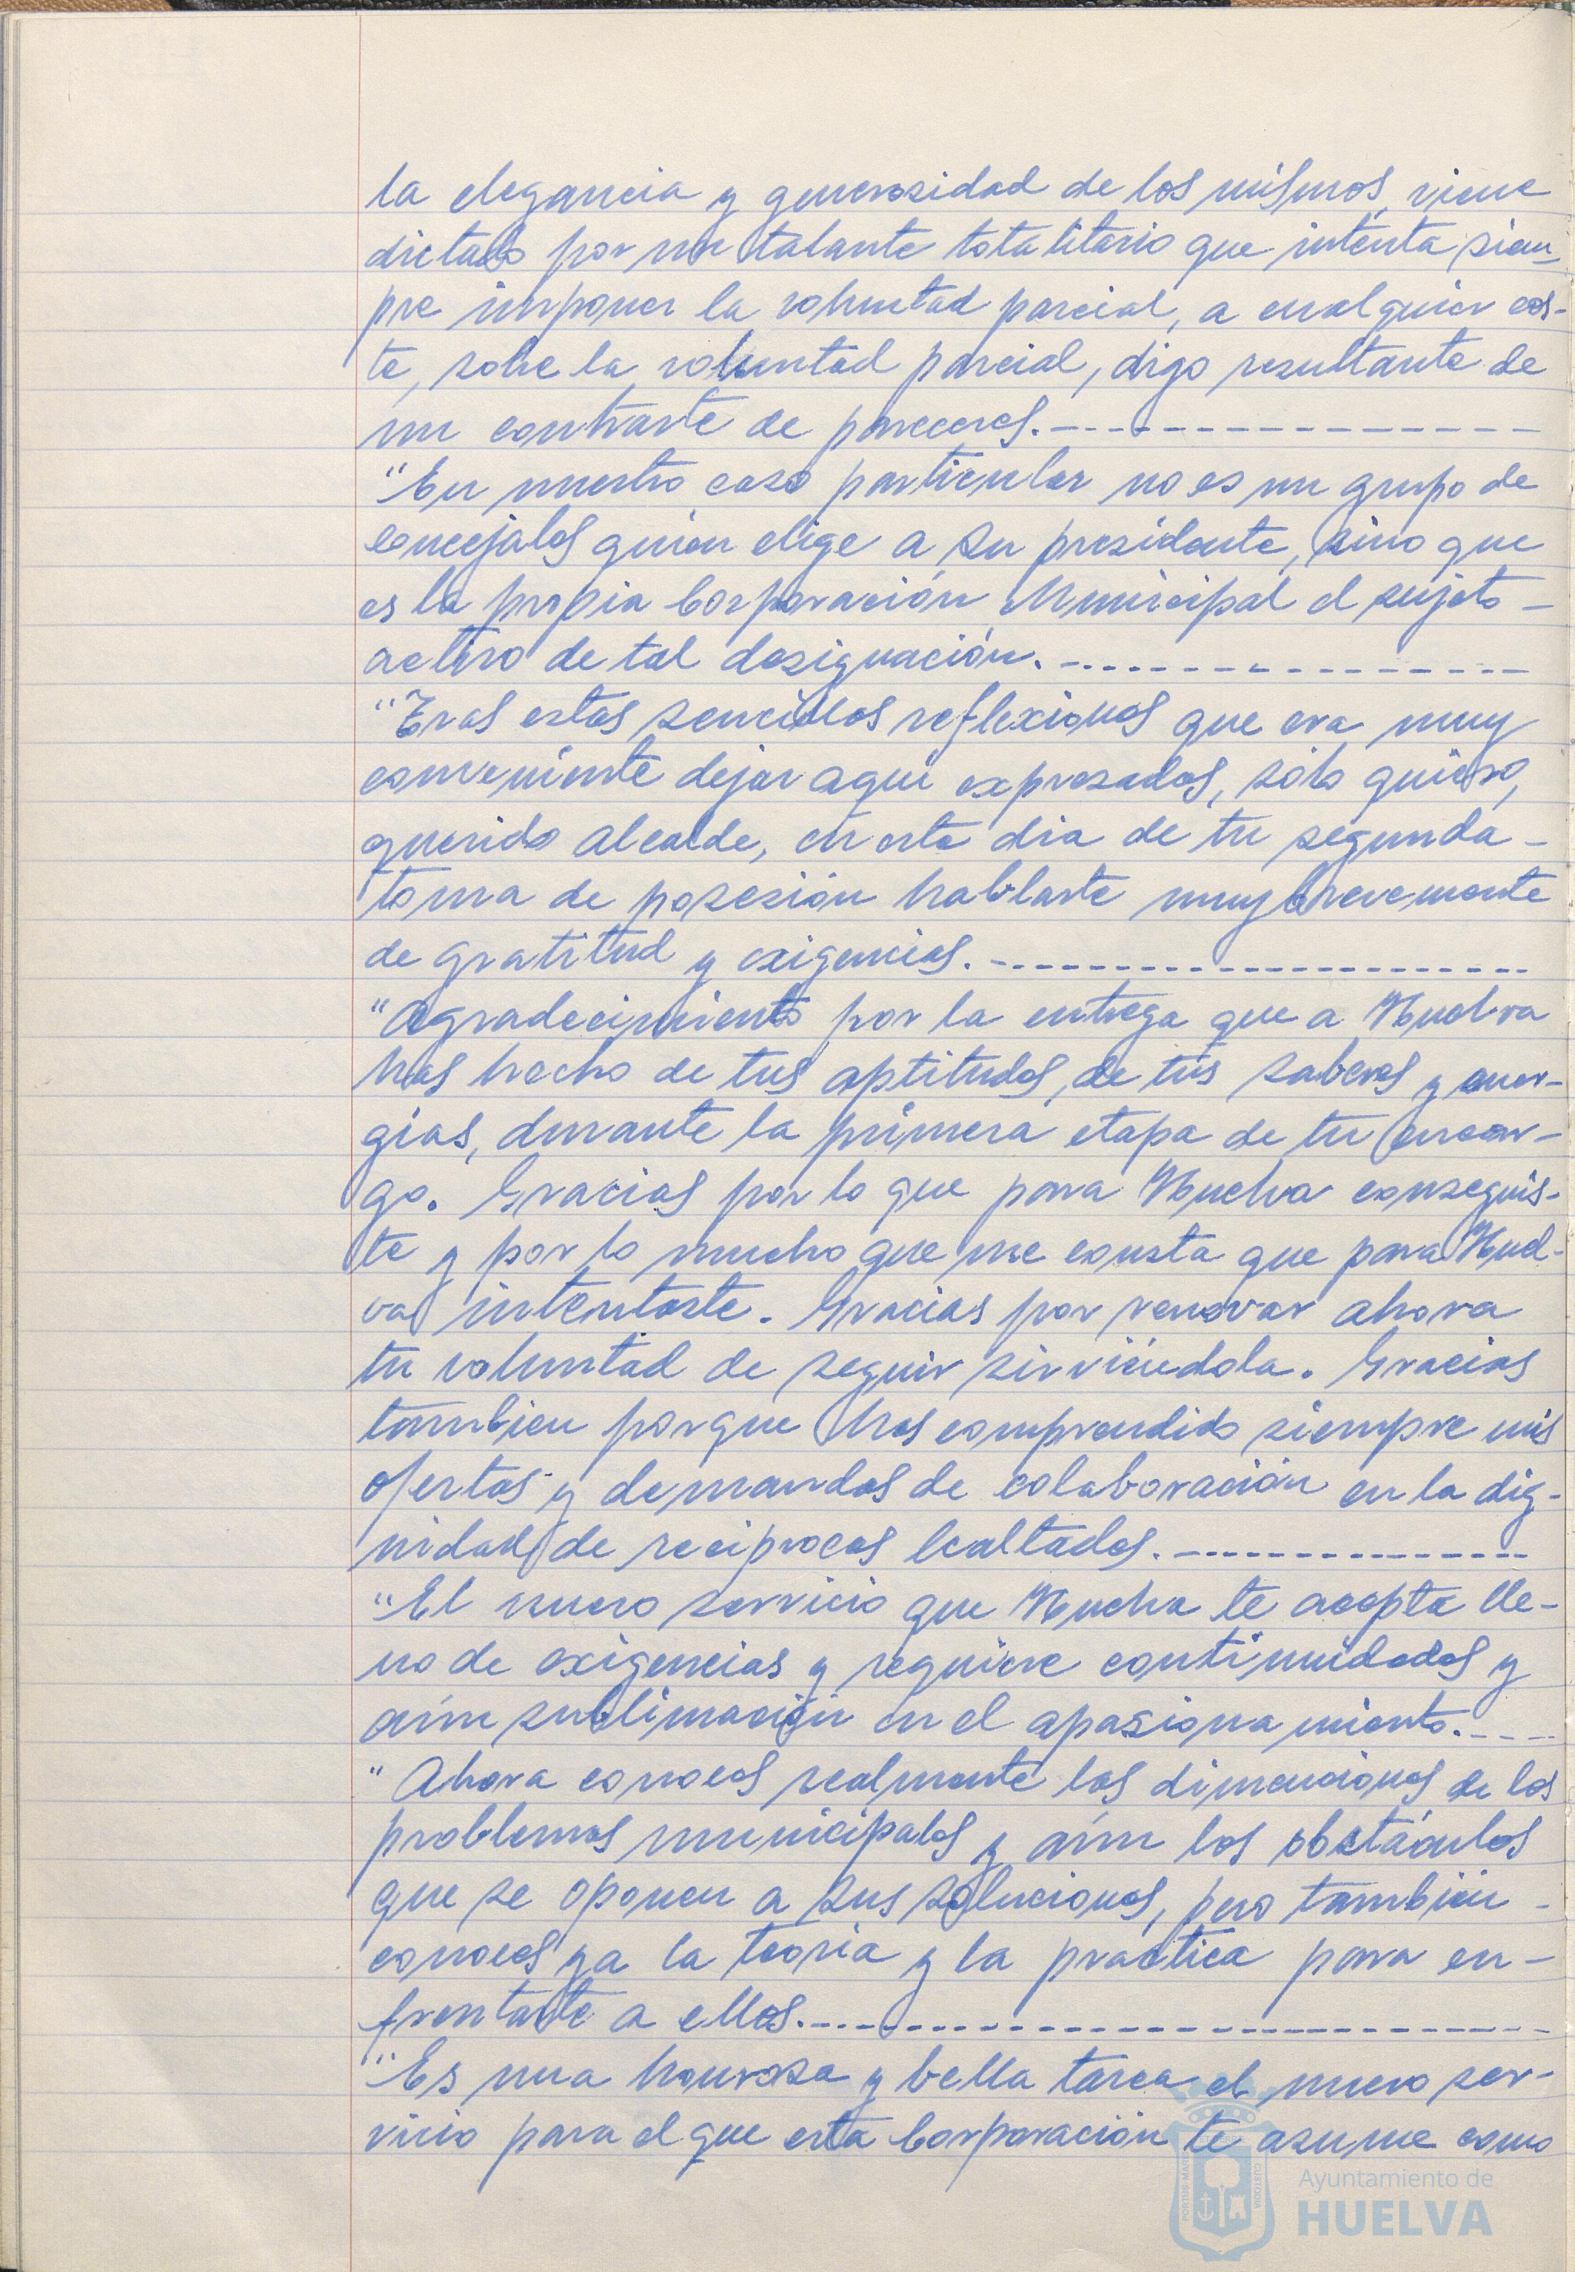 la elegancia y generosidad de los mismos, viene
dictado por un talante totalitario que intenta siem-
pre imponer la voluntad parcial, a cualquier cos-
te, sobre la voluntad parcial, digo resultante de
un contraste de pareceres.
"En nuestro caso particular no es un grupo de
concejales quien elige a su presidente, sino que
es la propia Corporación Municipal el sujeto -
activo de tal designación.
"Tras estas sencillas reflexiones que era muy
conveniente dejar aqui expresadas, sólo quiero,
querido Alcalde, en este dia de tu segunda -
toma de posesión hablarte muy brevemente
de gratitud y exigencias.
"Agradecimiento por la entrega que a Huelva
has hecho de tus aptitudes, de tus saberes y ener-
gias, durante la primera etapa de tu encar-
go. Gracias por lo que para Huelva conseguis-
te y por lo mucho que me consta que para Huel-
va intentaste. Gracias por renovar ahora
tu voluntad de seguir sirviéndola. Gracias
tambien porque has comprendido siempre mis
ofertas y demandas de colaboración en la dig-
nidad de reciprocas lealtades.
"El nuevo servicio que Huelva te acepta lle-
no de exigencias y requiere continuidades y
aún sublimación en el apasionamiento.
"Ahora conoces realmente las dimensiones de los
problemas municipales y aún los obstáculos
que se oponen a sus soluciones, pero también -
conoces ya la teoria y la practica para en-
frentarte a ellos.
"Es una honrosa y bella tarea el nuevo ser-
vicio para el que esta Corporación te asume como
Ayuntamiento de
HUELVA